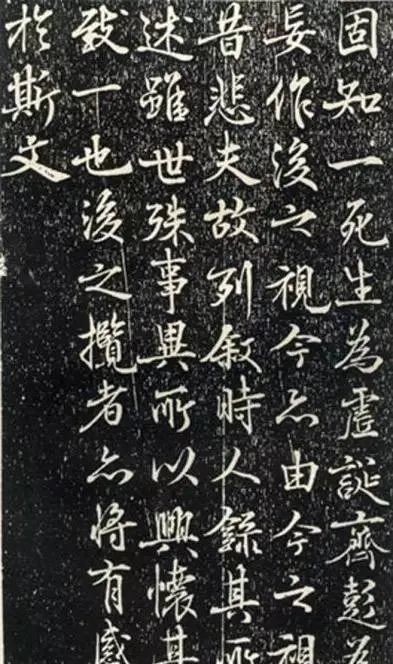 固知一死生為虛誕齊彭為
妄作後之視今亦由今之視
昔悲夫故列敘時人錄其所
述雖世殊事異所以興懷其
致一也後之攬者亦將有感
於斯文